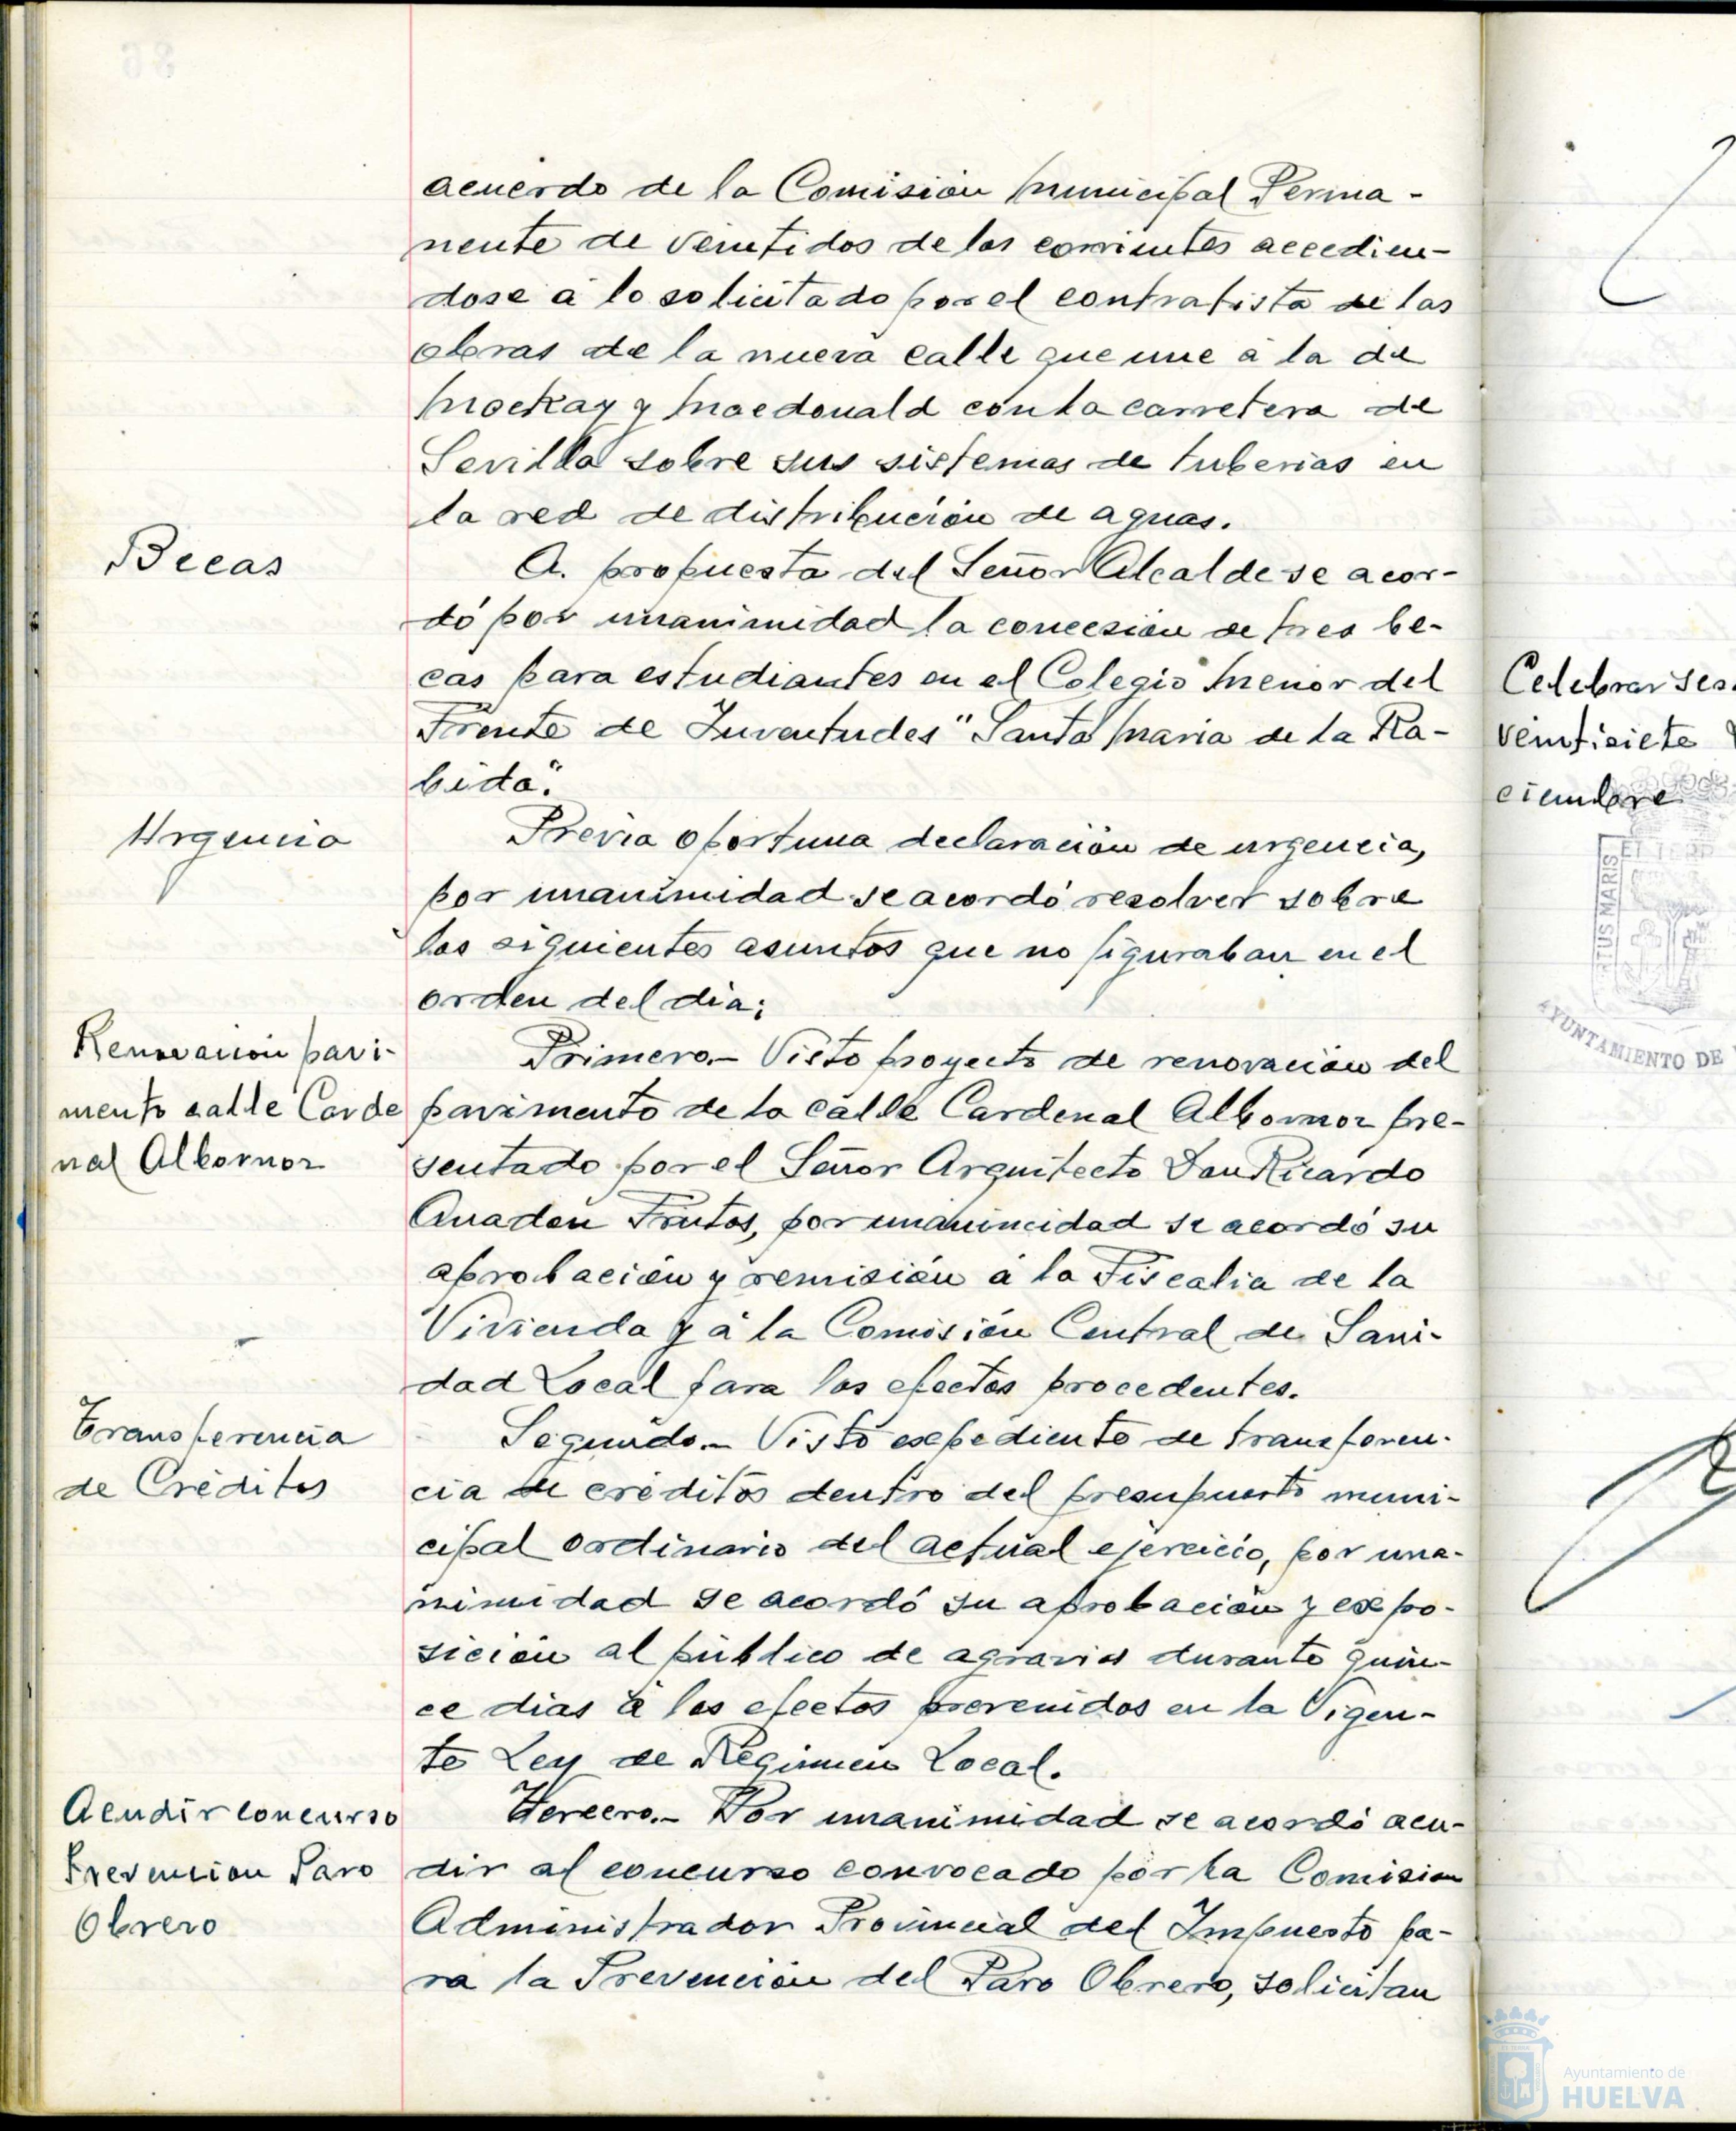 acuerdo de la Comisión Municipal Perma-
nente de veintidos de los corrientes accedien-
dose a lo solicitado por el contratista de las
obras de la nueva calle que une a la de
Mackay y Macdonald con la carretera de
Sevilla sobre sus sistemas de tuberias en
la red de distribución de aguas.
Becas
A. propuesta del Señor Alcalde se acor-
dó por unanimidad la concesión de tres be-
cas para estudiantes en el Colegio Menor del
Frente de Juventudes "Santa Maria de la Ra-
bida".
Urgencia
Previa oportuna declaración de urgencia,
por unanimidad se acordó resolver sobre
los siguientes asuntos que no figuraban en el
orden del dia:
Renovación pavi-
mento calle Carde
nal Albornoz
Primero.- Visto proyecto de renovación del
pavimento de la calle Cardenal Albornoz pre-
sentado por el Señor Arquitecto Don Ricardo
Anadon Frutos, por unanimidad se acordó su
aprobación y remisión a la Fiscalia de la
Vivienda y a la Comisión Central de Sani-
dad Local para los efectos procedentes.
Transferencia
de Créditos
Segundo.- Visto expediente de transferen-
cia de créditos dentro del presupuesto muni-
cipal ordinario del actual ejercicio, por una-
nimidad se acordó su aprobación y expo-
sición al público de agravios durante quin-
ce dias a los efectos prevenidos en la Vigen-
te Ley de Regimen Local.
Acudir concurso
Prevencion Paro
Obrero
Tercero.- Por unanimidad se acordó acu-
dir al concurso convocado por la Comision
Administrador Provincial del Impuesto pa-
ra la Prevención del Paro Obrero, solicitan
Celebrar ses
veintisiete
ciembre
TUS MARIS
AYUNTAMIENTO DE
Ayuntamiento de
HUELVA